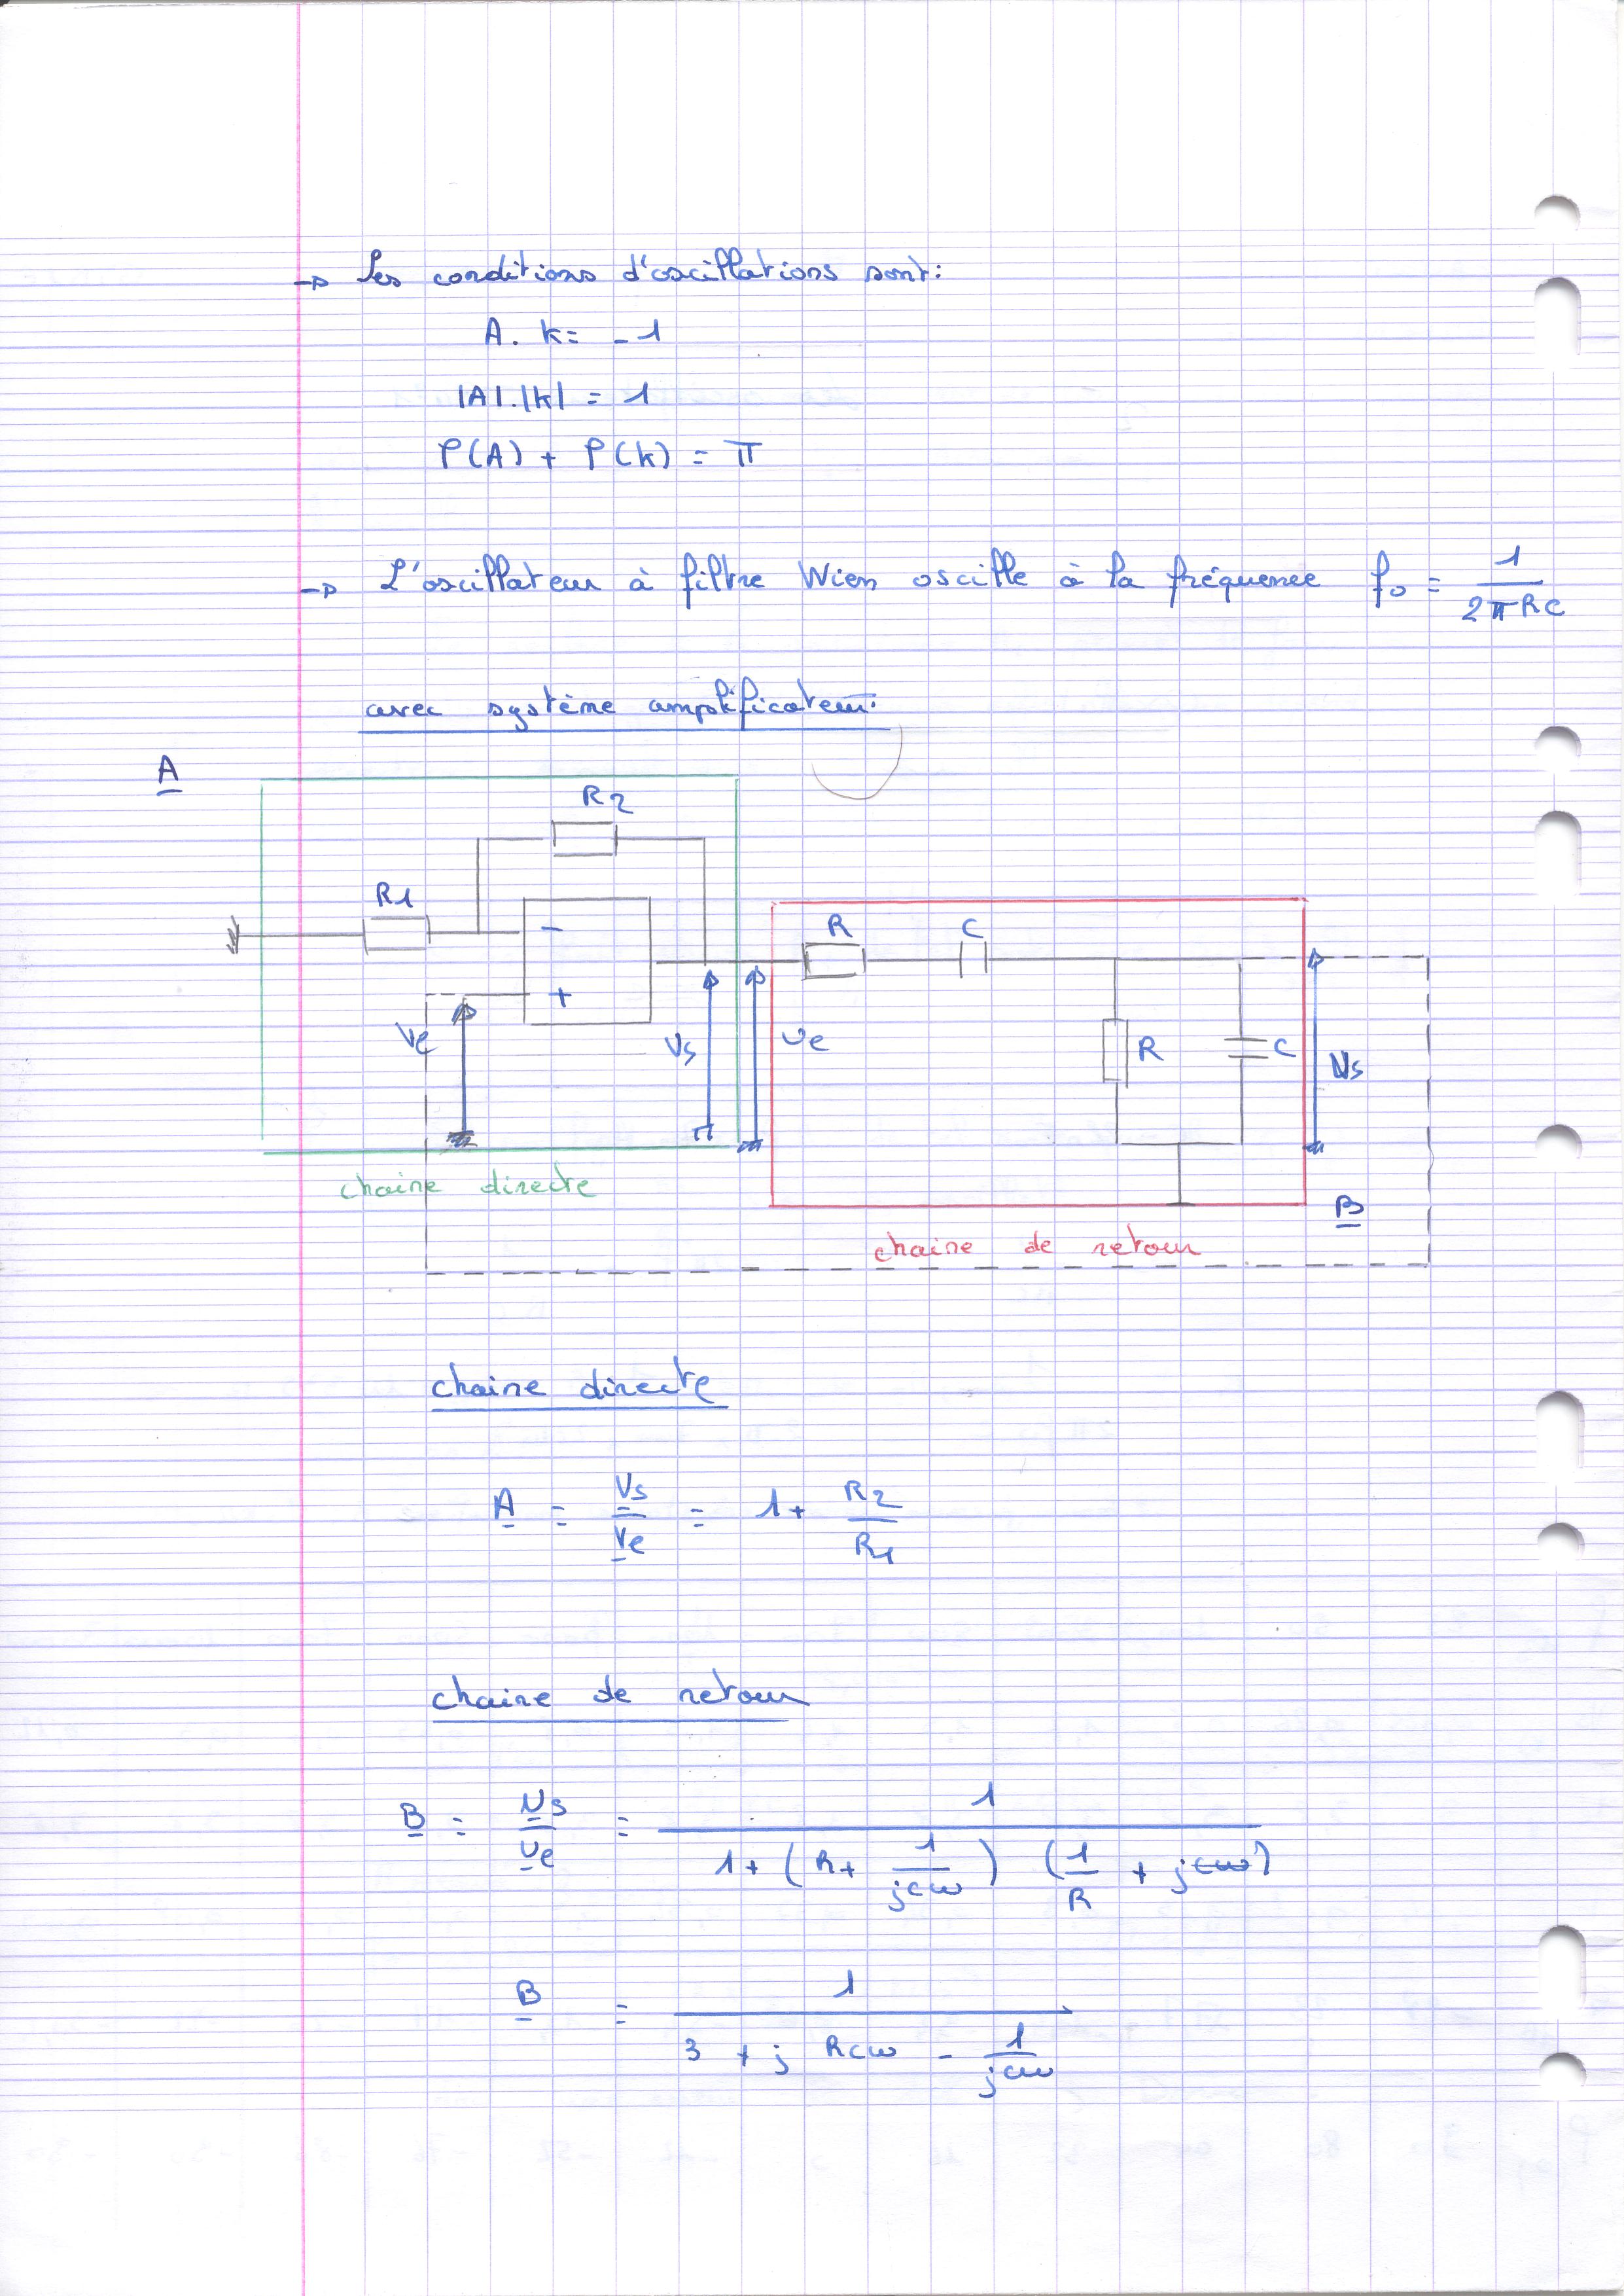 → Les conditions d'oscillations sont:
A. k = -1
|A|.|k| = 1
φ(A) + φ(k) = π
→ L'oscillateur à filtre Wien oscille à la fréquence f0 = 1/(2πRC)
avec système amplificateur.
A
R2
R1
-
+
Ve
Vs
chaine directe
Ve
R
C
R
C
Vs
B
chaine de retour
chaine directe
A = Vs/Ve = 1 + R2/R1
chaine de retour
B = Vs/Ve = 1/(1 + (R + 1/jcω) (1/R + jcω))
B = 1/(3 + j Rcω - 1/jcω)